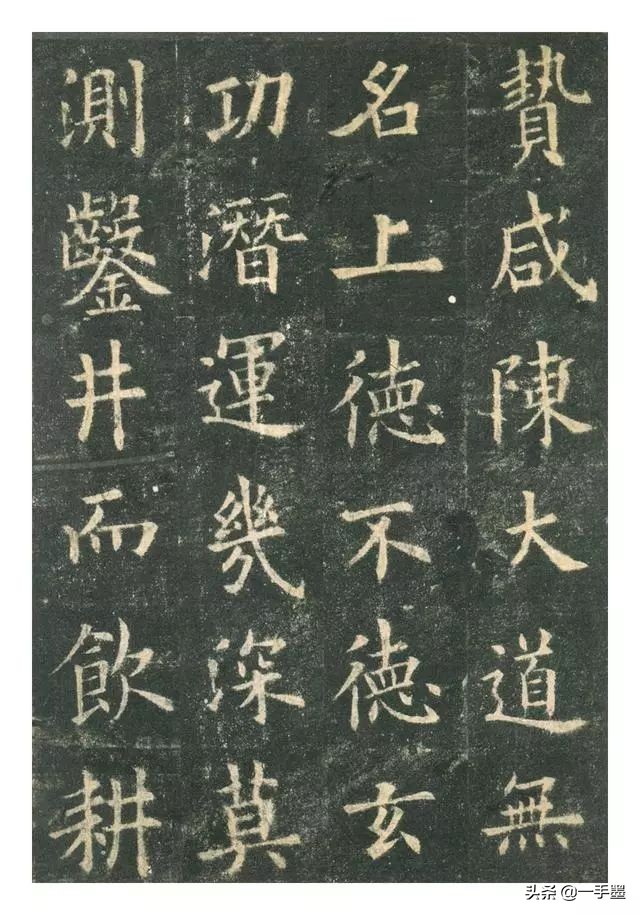 贄咸陳大道無
名上德不德玄
功潛運幾深莫
測鑿井而飲耕
头条 @一手墨